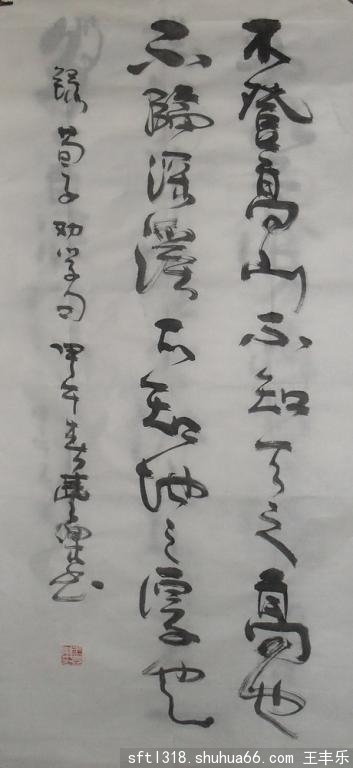 不登高山不知天之高也
不臨深溪不知地之厚也
錄荀子劝学句 甲午春豐樂书
sft1318.shuhua66.com 王丰乐